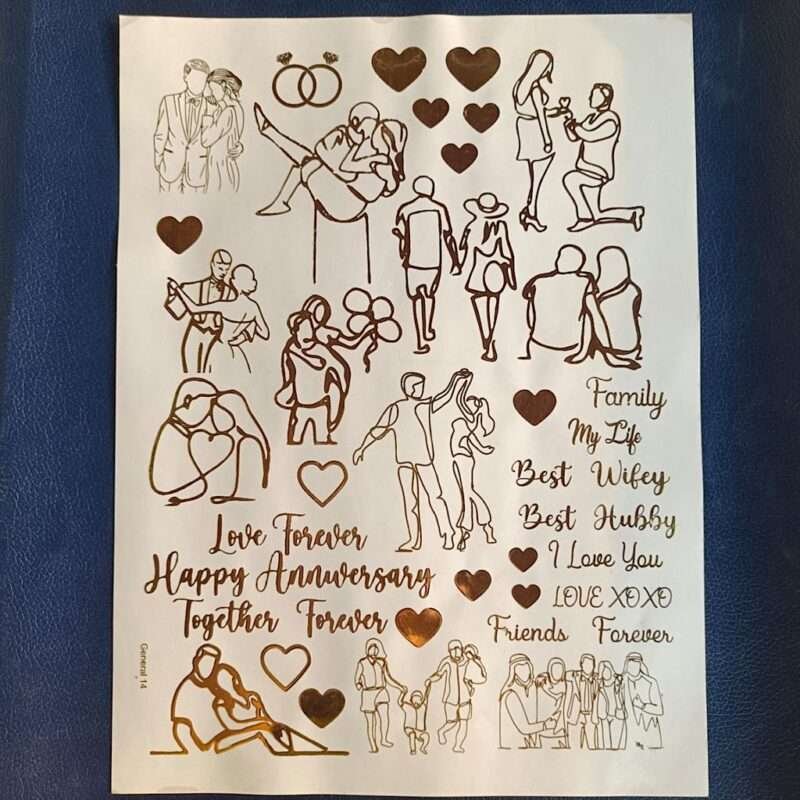 Family
My Life
Best Wifey
Best Hubby
I Love You
LOVE XOXO
Friends Forever
Love Forever
Happy Anniversary
Together Forever
General 14